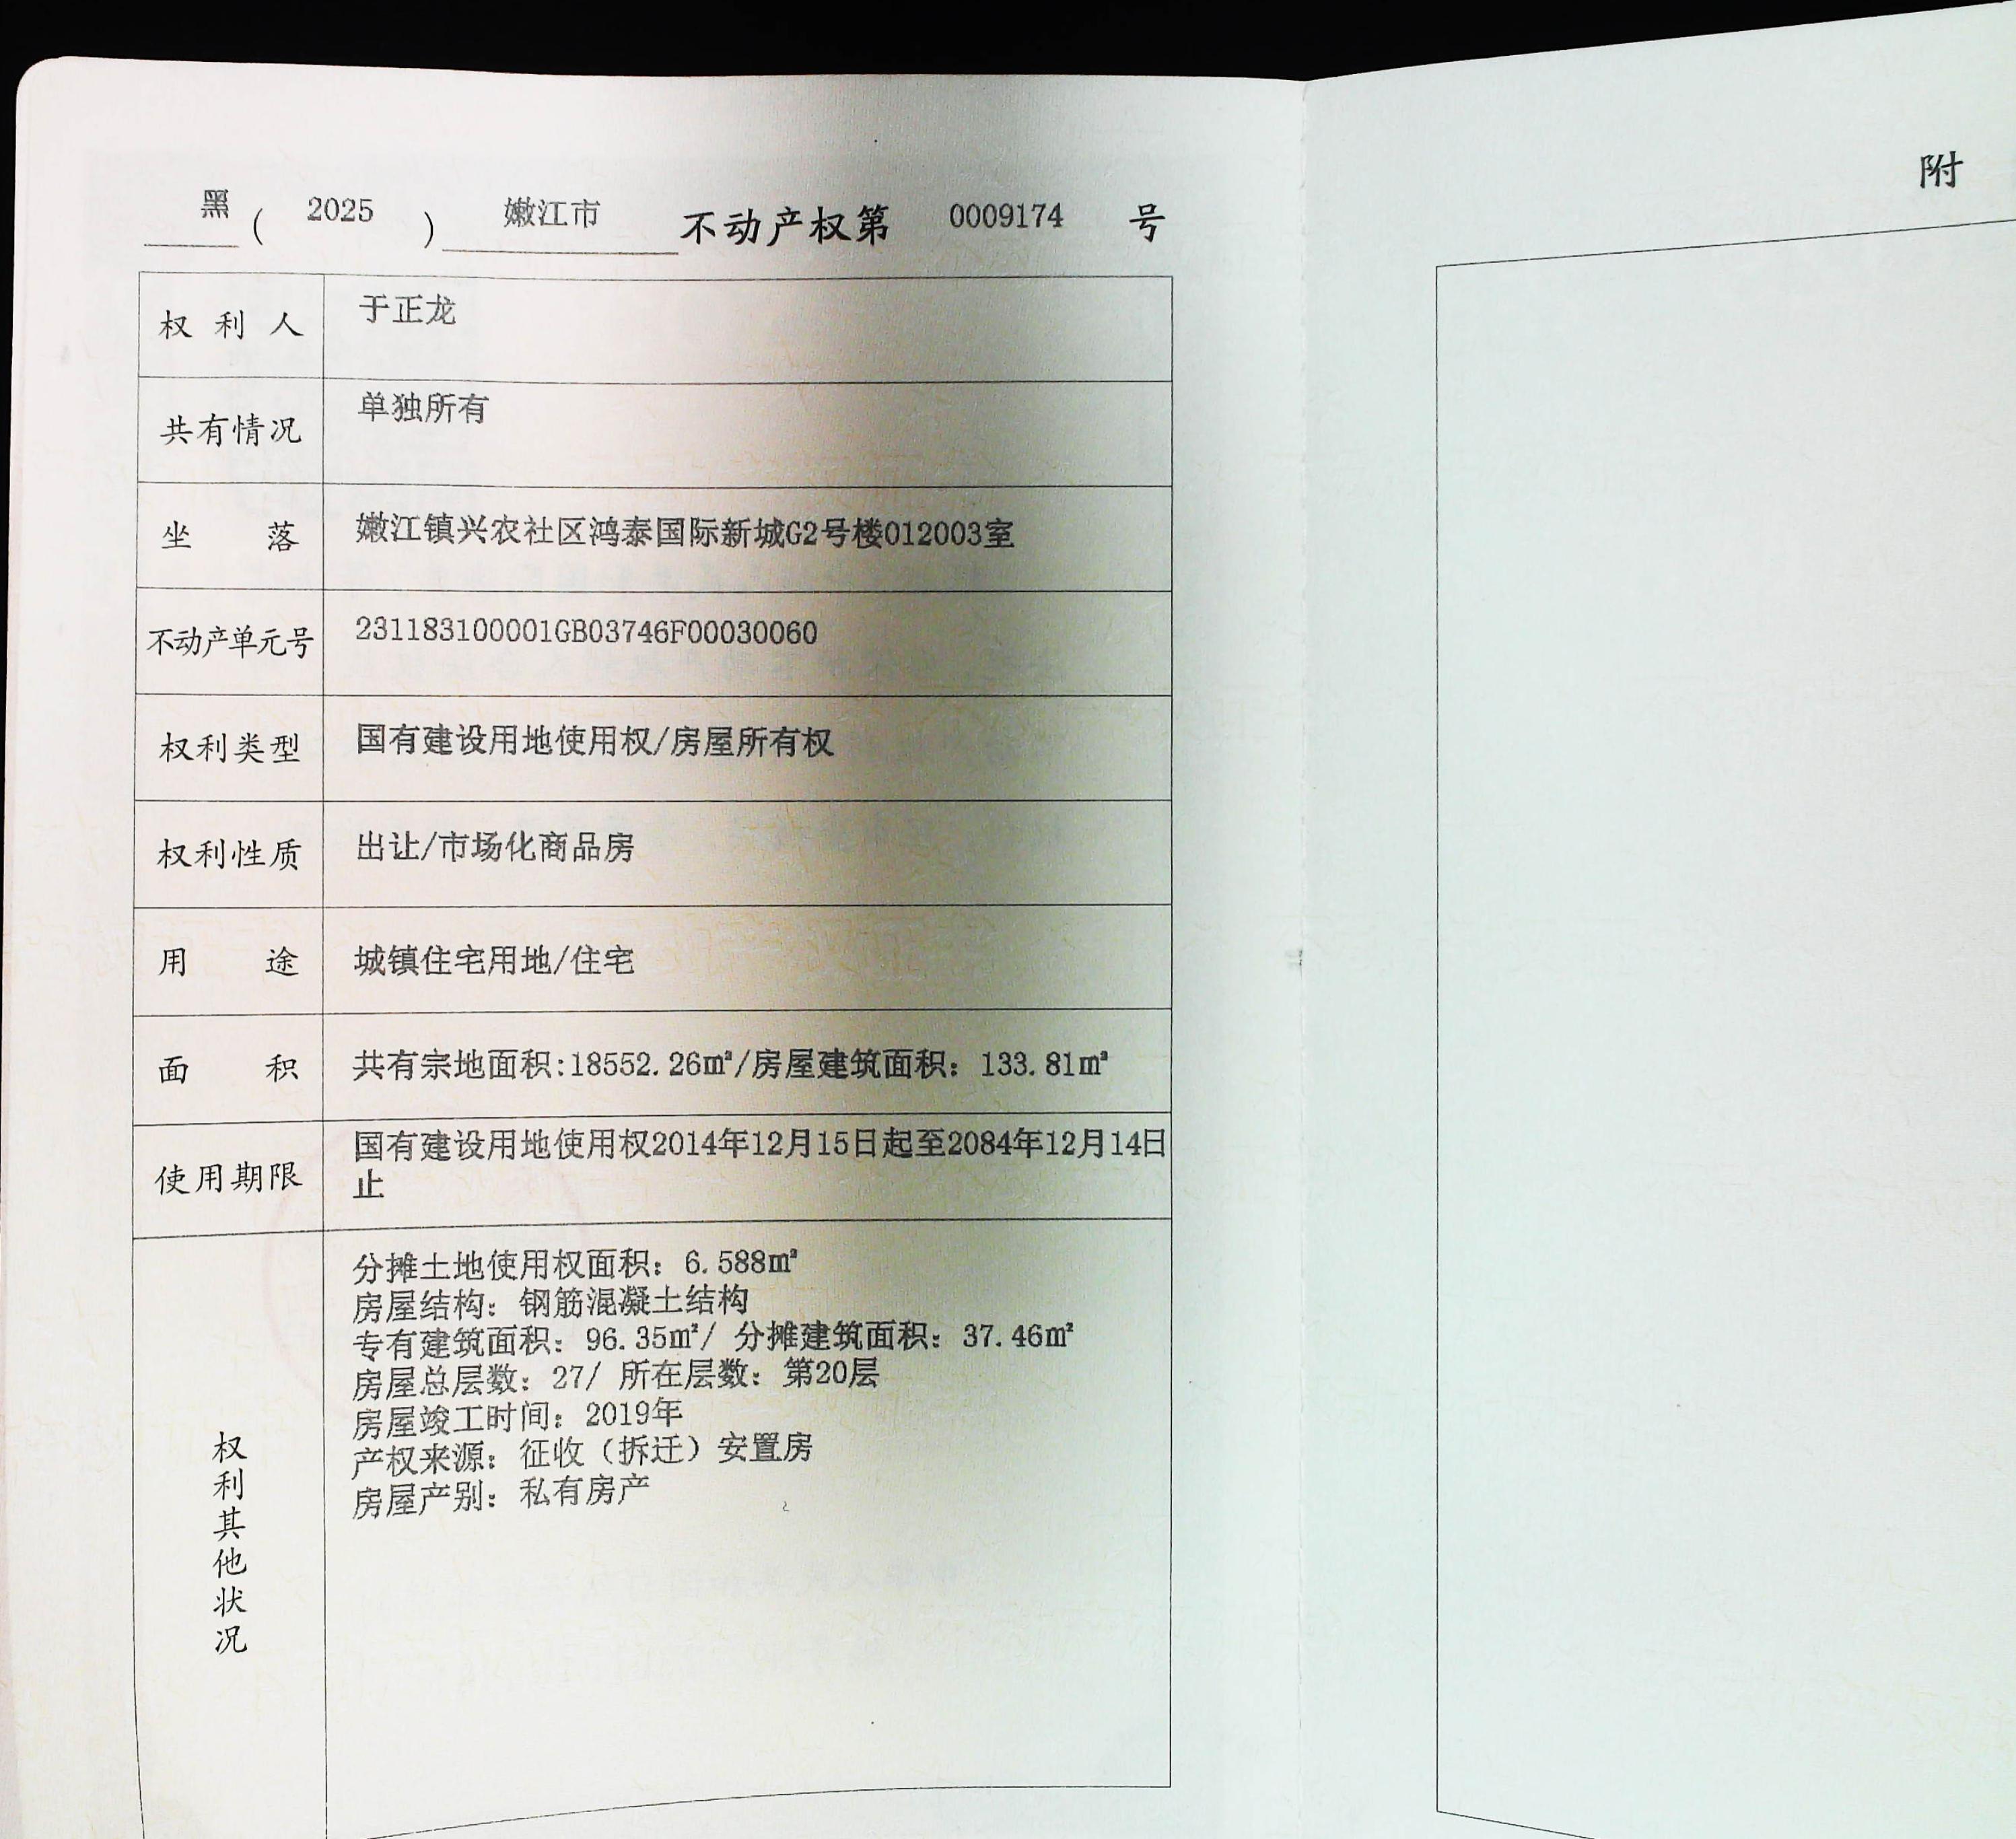 黑(2025)嫩江市不动产权第0009174号
附
权利人 于正龙
共有情况 单独所有
坐落 嫩江镇兴农社区鸿泰国际新城G2号楼012003室
不动产单元号 231183100001GB03746F00030060
权利类型 国有建设用地使用权/房屋所有权
权利性质 出让/市场化商品房
用途 城镇住宅用地/住宅
面积 共有宗地面积:18552.26㎡/房屋建筑面积：133.81㎡
使用期限 国有建设用地使用权2014年12月15日起至2084年12月14日
止
权利其他状况
分摊土地使用权面积：6.588㎡
房屋结构：钢筋混凝土结构
专有建筑面积：96.35㎡/ 分摊建筑面积：37.46㎡
房屋总层数：27/ 所在层数：第20层
房屋竣工时间：2019年
产权来源：征收（拆迁）安置房
房屋产别：私有房产